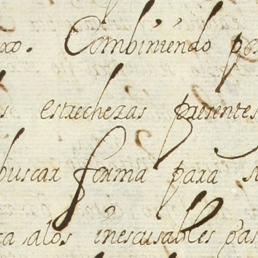 xo. Combiniendo po
s estrechezas presentes
buscar forma para s
ca alos inescusables gas